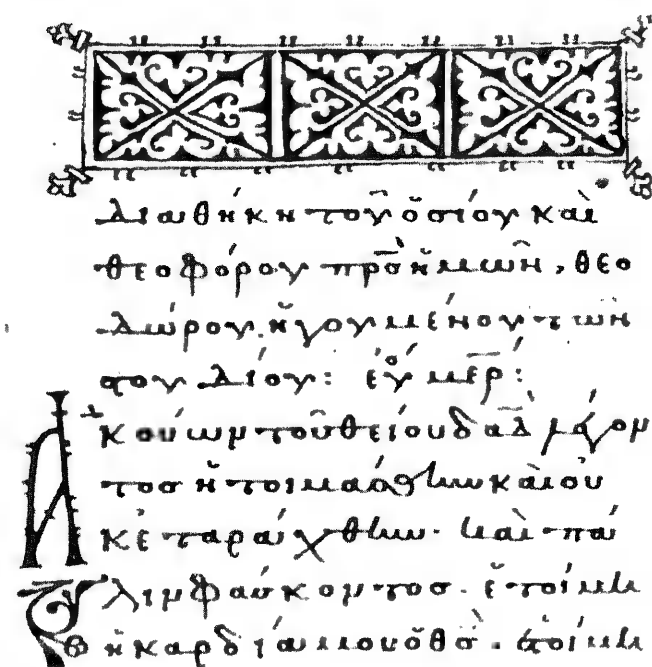 Διαθήκη τοῦ ὁσίου καὶ
θεοφόρου πρ̅σ ἡμῶν, θεο
δώρου ἡγουμένου τῶν
στουδίου: εὐ μερ:
Ἀκούων τοῦ θείου δαδ̅ λέγοντοσ
ἡτοιμάσθην καὶ οὐ
κ ἐταράχθην· καὶ πά
λιν φάσκοντοσ· ἑτοίμη
ἡ καρδία μου ὁ θσ̅· ἑτοίμη